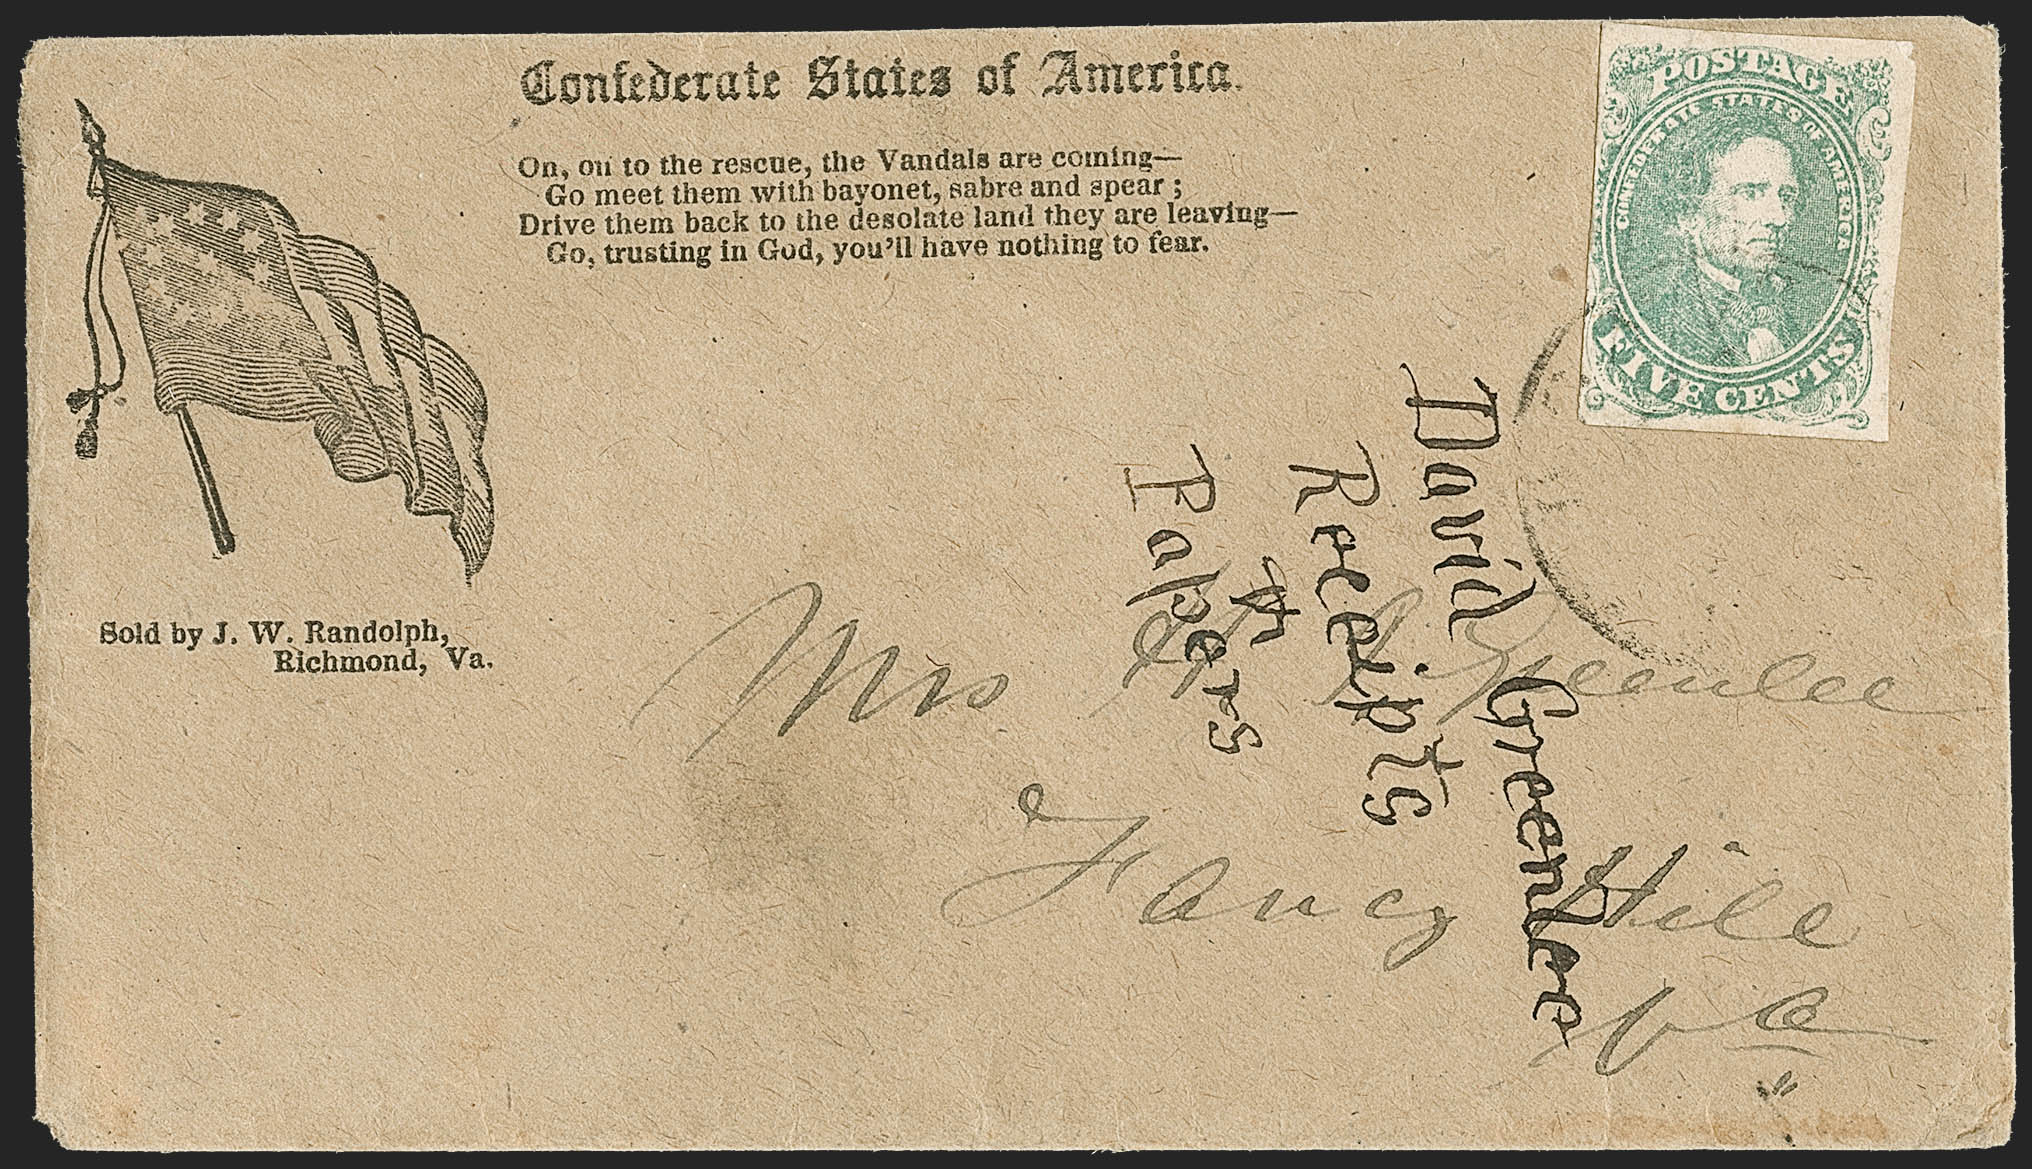 Confederate States of America.
On, on to the rescue, the Vandals are coming—
Go meet them with bayonet, sabre and spear ;
Drive them back to the desolate land they are leaving—
Go, trusting in God, you'll have nothing to fear.
Sold by J. W. Randolph,
Richmond, Va.
POSTAGE
CONFEDERATE STATES OF AMERICA
FIVE CENTS
Mrs Greenlee
Fancy Hill
Va
David Greenlee
Receipts
Papers